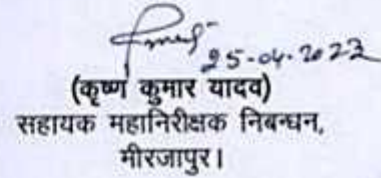 25-04-2023
(कृष्ण कुमार यादव)
सहायक महानिरीक्षक निबन्धन,
मीरजापुर।